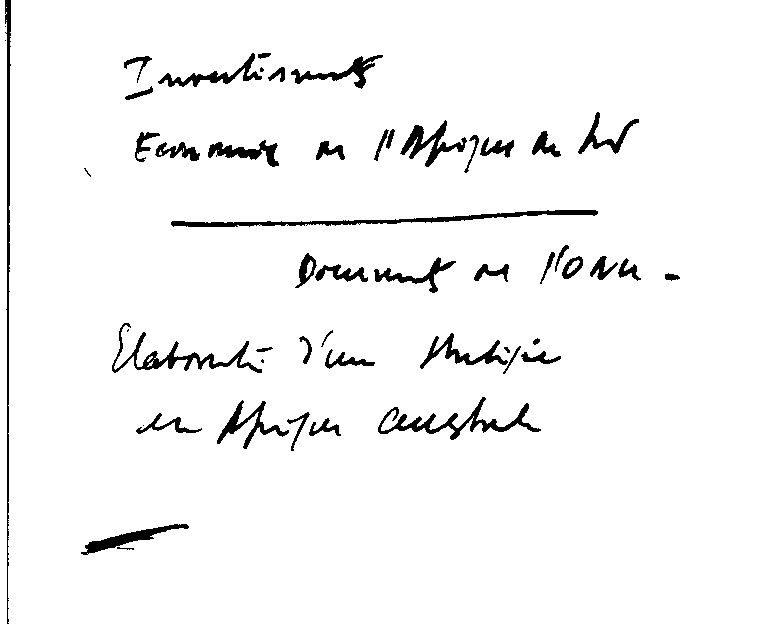 Investissements
Economie de l'Afrique du Sud
Documents de l'ONU -
Elaboration d'une stratégie
en Afrique australe